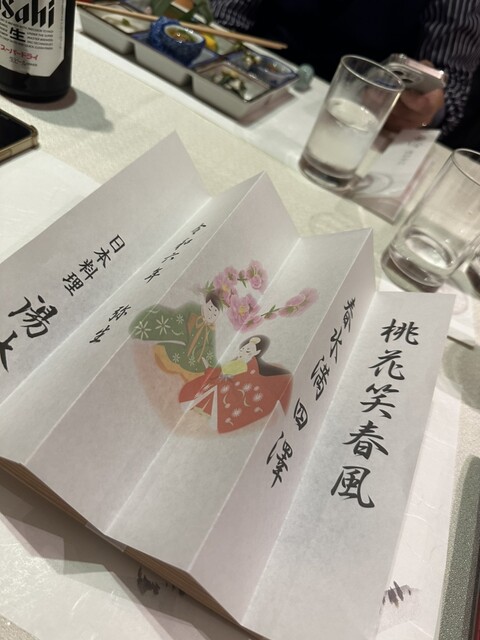 桃花笑春風
春水満四澤
令和六年 弥生
日本料理 湯
sahi
生
スーパードライ